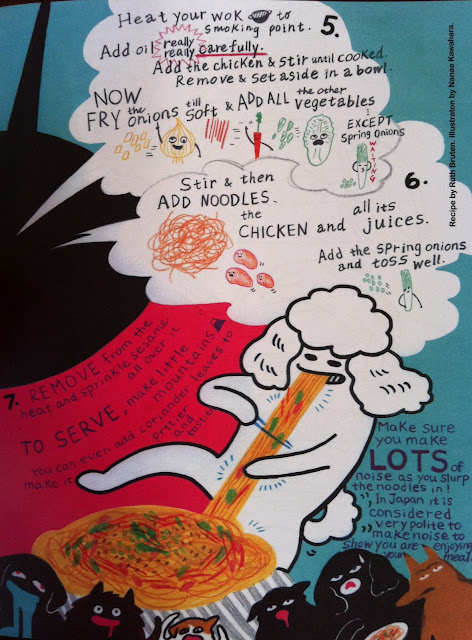 5.
Heat your wok to
smoking point.
Add oil really
really carefully.
Add the chicken & stir until cooked.
Remove & set aside in a bowl.
NOW
FRY the onions till soft & ADD ALL the other
vegetables
EXCEPT
Spring onions
WAITING
6.
Stir & then
ADD NOODLES.
the
CHICKEN and all its
juices.
Add the spring onions
and toss well.
7. REMOVE from the
heat and sprinkle sesame
all over it
TO SERVE, make little
mountains
You can even add coriander leaves to
make it prettier
and
tastier
Make sure
you make
LOTS of
noise as you slurp
the noodles in!
"In Japan it is
considered
very polite to
make noise to
show you are enjoying
your meal."
Recipe by Ruth Bruten. Illustration by Nanae Kawahara.